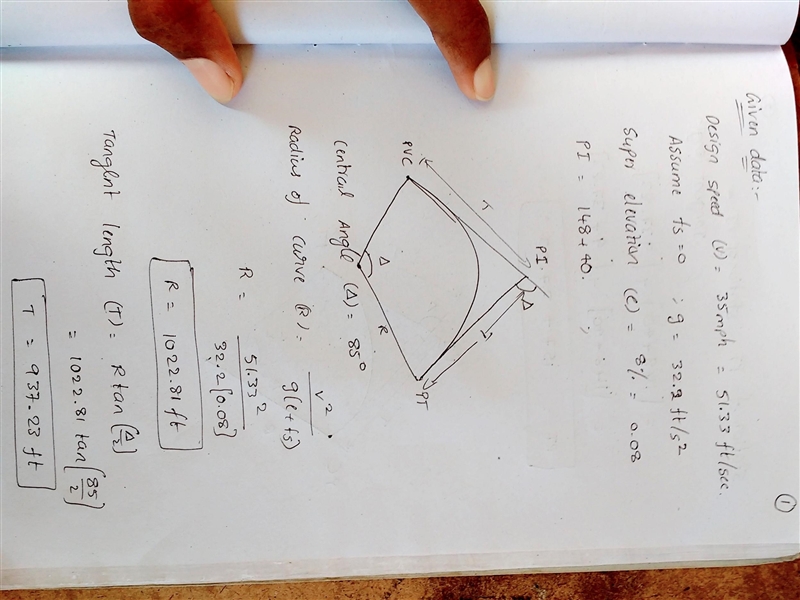 ①
Given data:-
Design speed (v) = 35mph = 51.33 ft/sec.
Assume fs = 0 ; g = 32.2 ft/s²
Super elevation (e) = 8% = 0.08
PI = 148+40. ;
PI.
Δ
T
T
PVC
PT
Δ
R
Central Angle (Δ) = 85°
Radius of curve (R) = v² / g(e+fs) .
R = 51.33² / 32.2(0.08)
R = 1022.81 ft
Tanglent length (T) = R tan(Δ/2)
= 1022.81 tan(85/2)
T = 937.23 ft